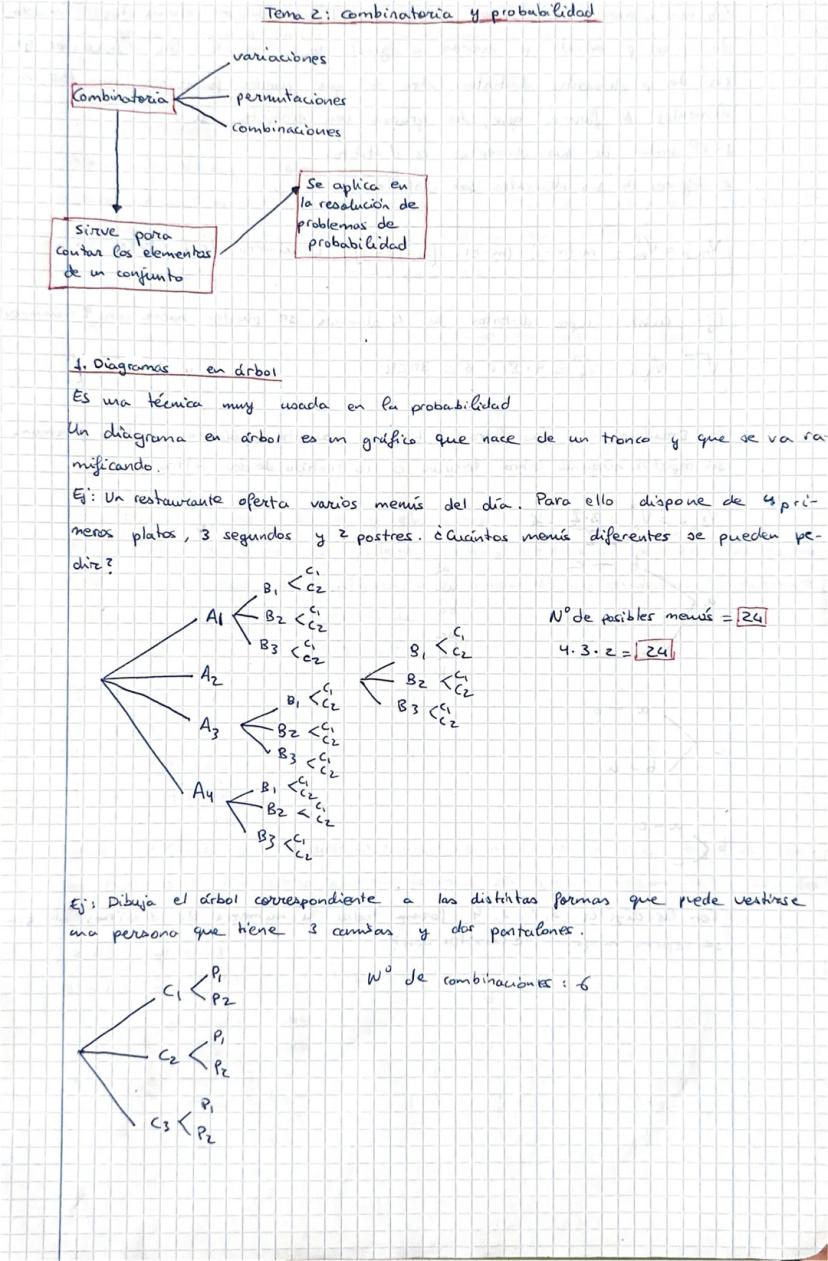 Tema 2: combinatoria y probabilidad
variaciones
Combinatoria
permutaciones
combinaciones
Se aplica en
la resolución de
problemas de
probabilidad
sirve para
contar los elementos
de un conjunto
1. Diagramas en árbol
Es una técnica muy usada en la probabilidad
Un diagrama en árbol es un gráfico que nace de un tronco y que se va ra-
mificando.
Ej: Un restaurante oferta varios menús del día. Para ello dispone de 4 pri-
meros platos, 3 segundos y 2 postres. ¿Cuántos menús diferentes se pueden pe-
dir?
A1
B1 C1 C2
B2 C1 C2
B3 C1 C2
A2
B1 C1 C2
B2 C1 C2
B3 C1 C2
A3
B1 C1 C2
B2 C1 C2
B3 C1 C2
A4
B1 C1 C2
B2 C1 C2
B3 C1 C2
Nº de posibles menús = 24
4·3·2 = 24
Ej: Dibuja el árbol correspondiente a las distintas formas que puede vestirse
una persona que tiene 3 camisas y dos pantalones.
C1 P1 P2
C2 P1 P2
C3 P1 P2
Nº de combinaciones: 6